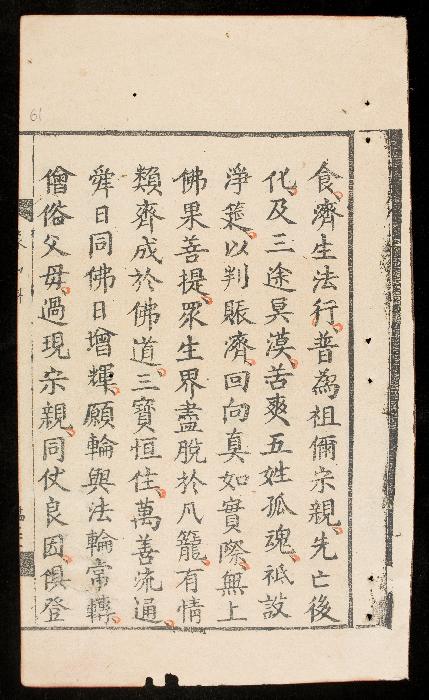 食濟生法行普為祖儞宗親先亡後
化及三途冥漠苦爽五姓孤魂祗設
淨筵以判賑濟回向真如實際無上
佛果菩提眾生界盡脫於爪籠有情
類齊成於佛道三寶恒住萬善流通
舜日同佛日增輝願輪與法輪常轉
僧俗父母過現宗親同仗良因俱登
61